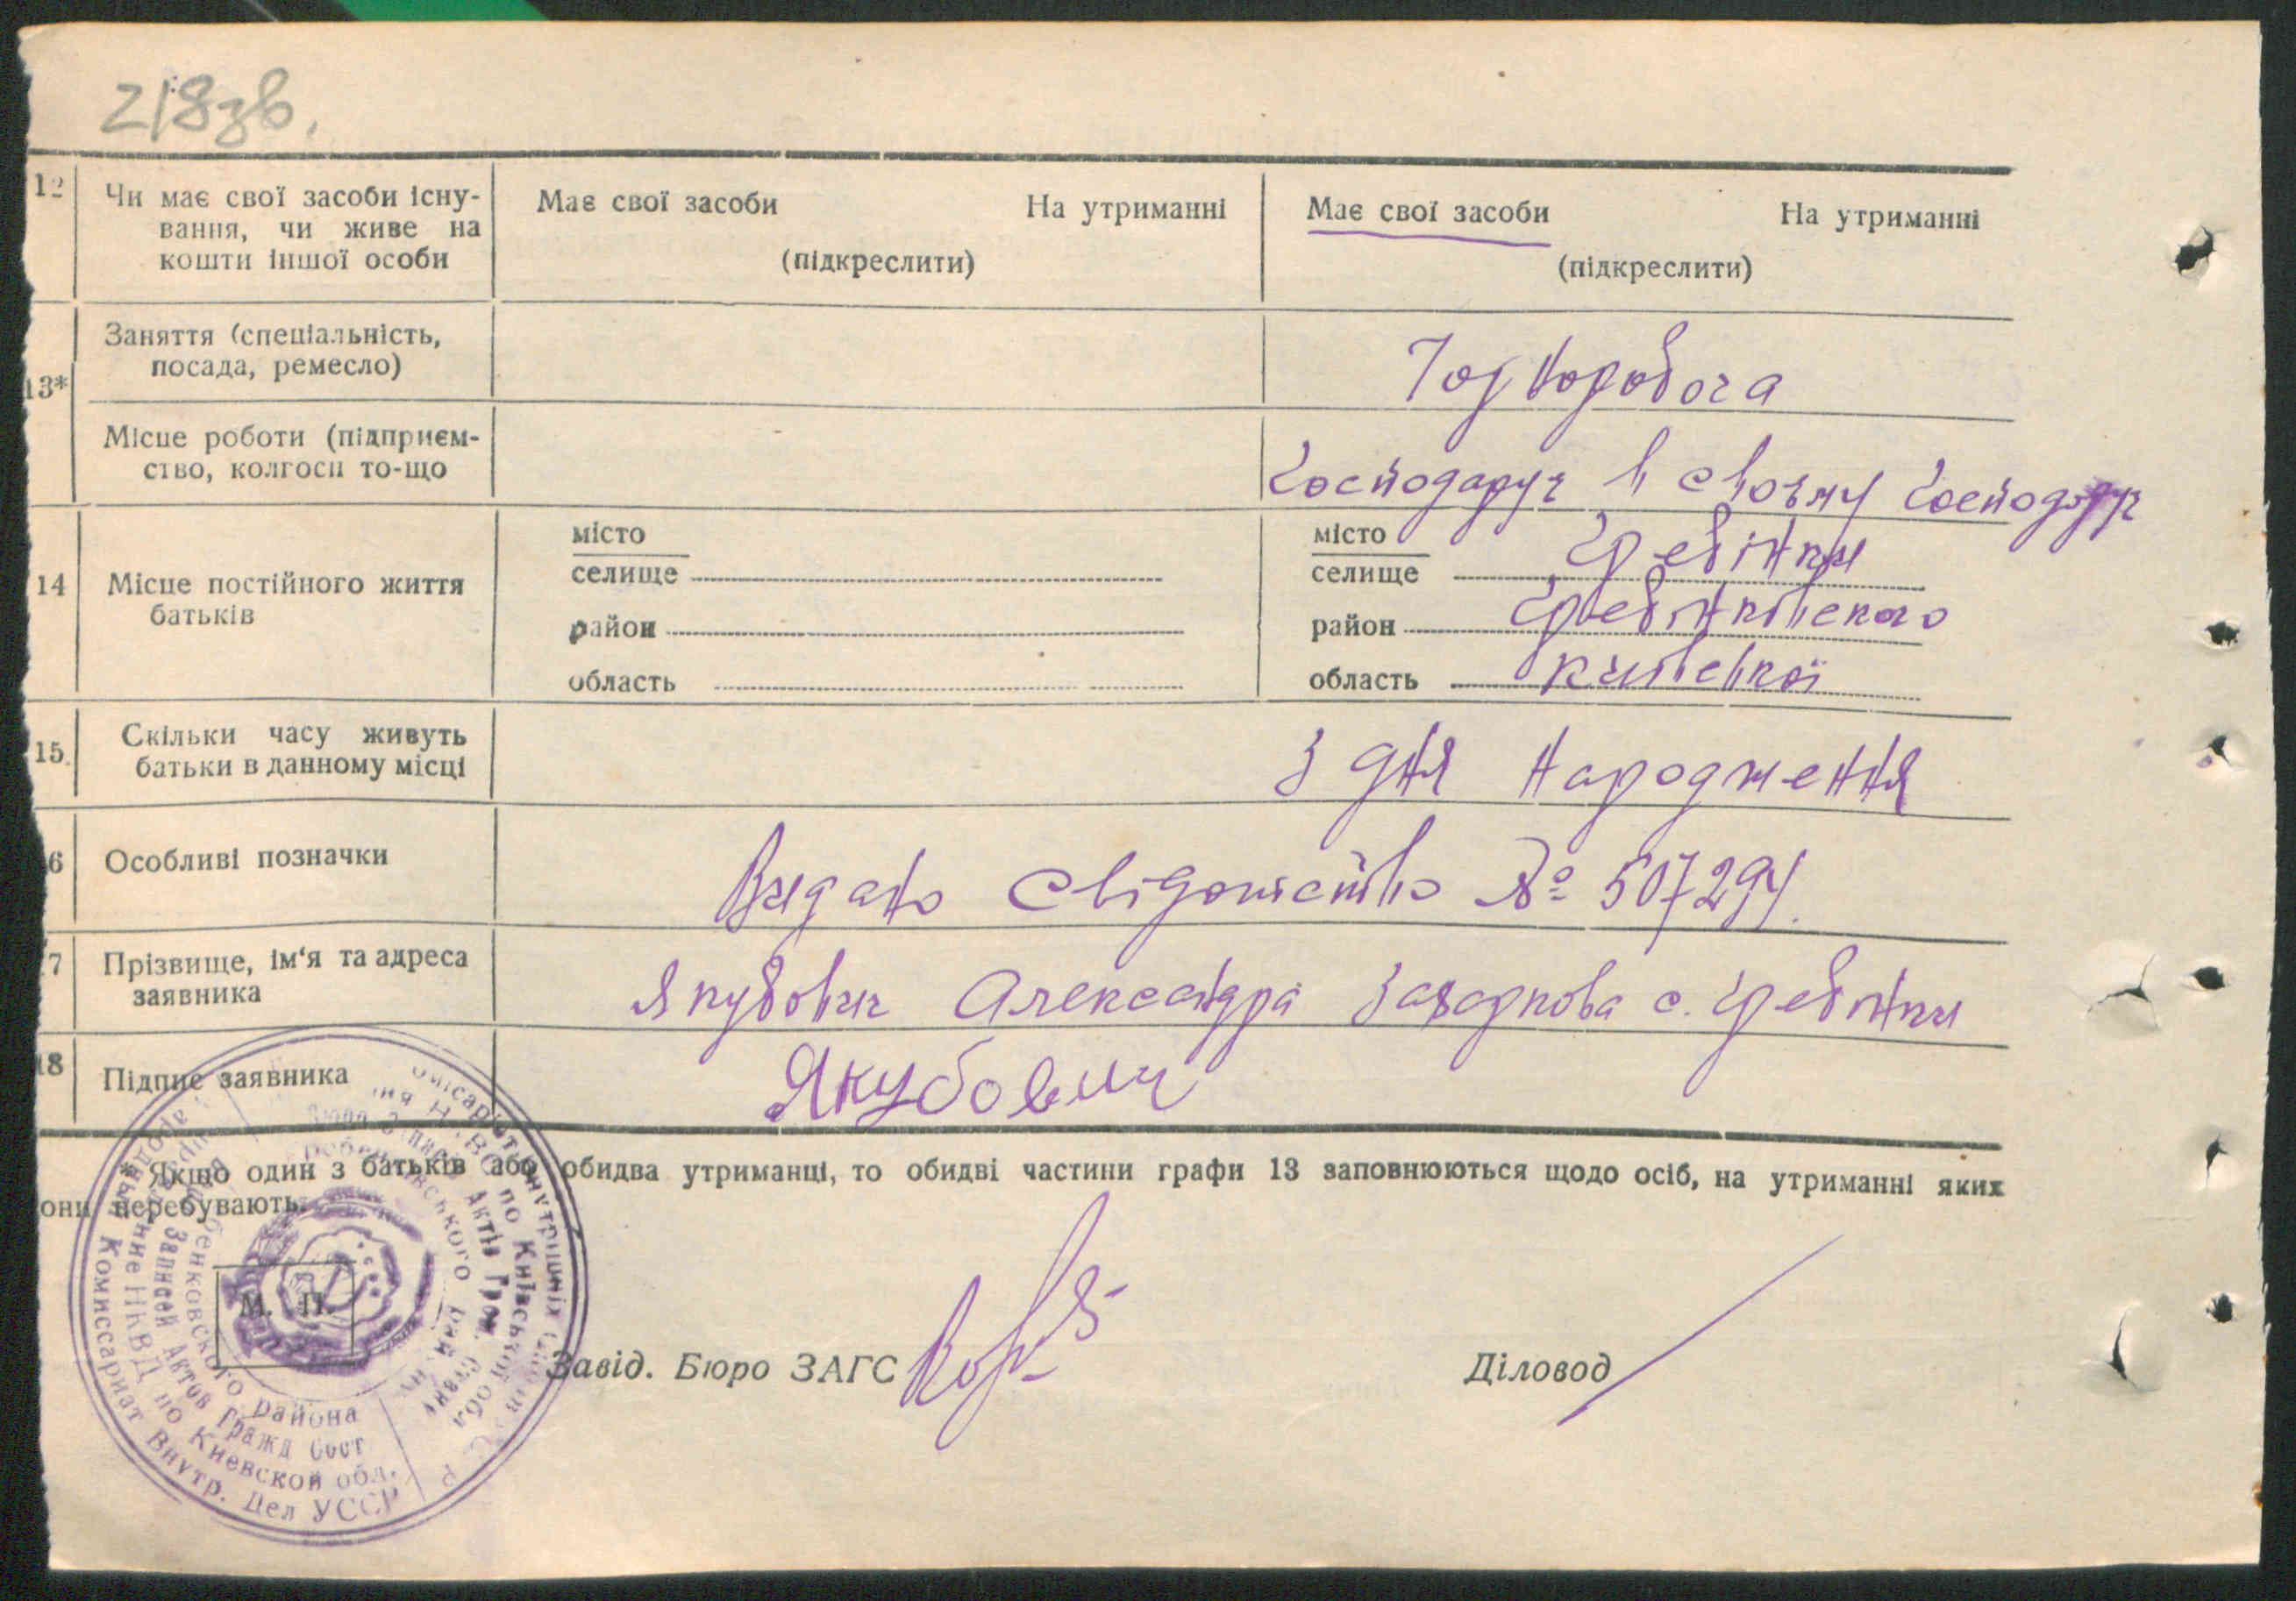 218зв.
12 Чи має свої засоби існу- Має свої засоби На утриманні Має свої засоби На утриманні
вання, чи живе на
кошти іншої особи (підкреслити) (підкреслити)
13* Заняття (спеціальність, Чорноробоча
посада, ремесло)
Місце роботи (підприєм- Господарує в своєму
ство, колгосп то-що
14 Місце постійного життя батьків
місто місто
селище селище Гребінки
район район Гребінківского
область область Київської
15. Скільки часу живуть З дня народження
батьки в данному місці
6 Особливі позначки Видано свідотство № 507294.
7 Прізвище, ім'я та адреса Якубович Александра с. Гребінки
заявника
18 Підпис заявника Якубович
* Якщо один з батьків або обидва утриманці, то обидві частини графи 13 заповнюються щодо осіб, на утриманні яких
они перебувають.
М. П.
Завід. Бюро ЗАГС Діловод
Комиссариат Внутр. Дел УССР
НКВД по Киевской обл.
Записей Актов Гражд Сост
района
по Київській обл